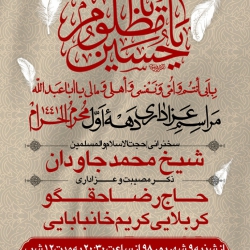 یا حسین مظلوم
بابی انتم و امی و نفسی و اهلی و مالی یا اباعبدالله
مراسم عزاداری دهه اول محرم الحرام ۱۴۴۱
سخنرانی حجت الاسلام و المسلمین
شیخ محمد جاودان
ذکر مصیبت و عزاداری
حاج رضا حقگو
کربلایی کریم خانبابایی
از شنبه ۹ شهریور ۹۸ از ساعت ۲۰:۳۰ به مدت ۱۲ شب